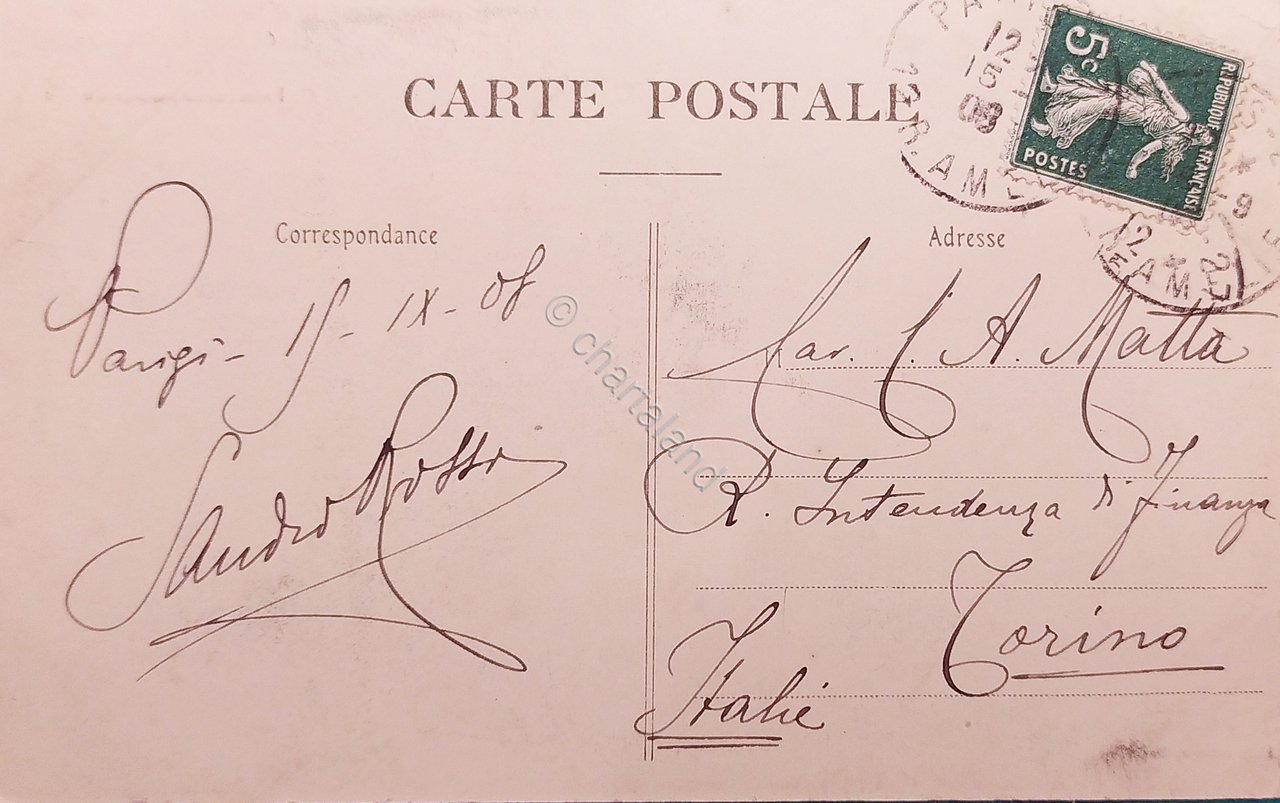 CARTE POSTALE
5c
POSTES
R.PUBLIQUE FRANÇAISE
12
15
08
R. AM
12
AM
Correspondance
Parigi - 15 - IX - 08
Sandro Rossi
© chartaland
Adresse
Cav. C. A. Matta
R. Intendenza di Finanza
Torino
Italie